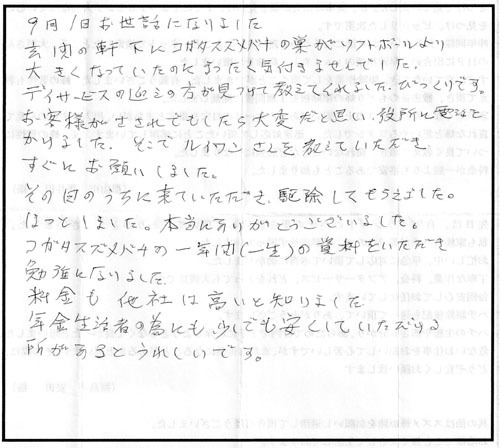 9月1日お世話になりました
玄関の軒下にコガタスズメバチの巣がソフトボールより
大きくなっていたのにまったく気付きませんでした。
デイサービスの迎えの方が見つけて教えてくれました。びっくりです。
お客様がさされでもしたら大変だと思い、役所に電話を
かけました。そこでルイワンさんを教えていただき
すぐにお願いしました。
その日のうちに来ていただき、駆除してもらえました。
ほっとしました。本当にありがとうございました。
コガタスズメバチの一年間(一生)の資料をいただき
勉強になりました
料金も他社は高いと知りました
年金生活者の為にも少しでも安くしていただける
所があるとうれしいです。